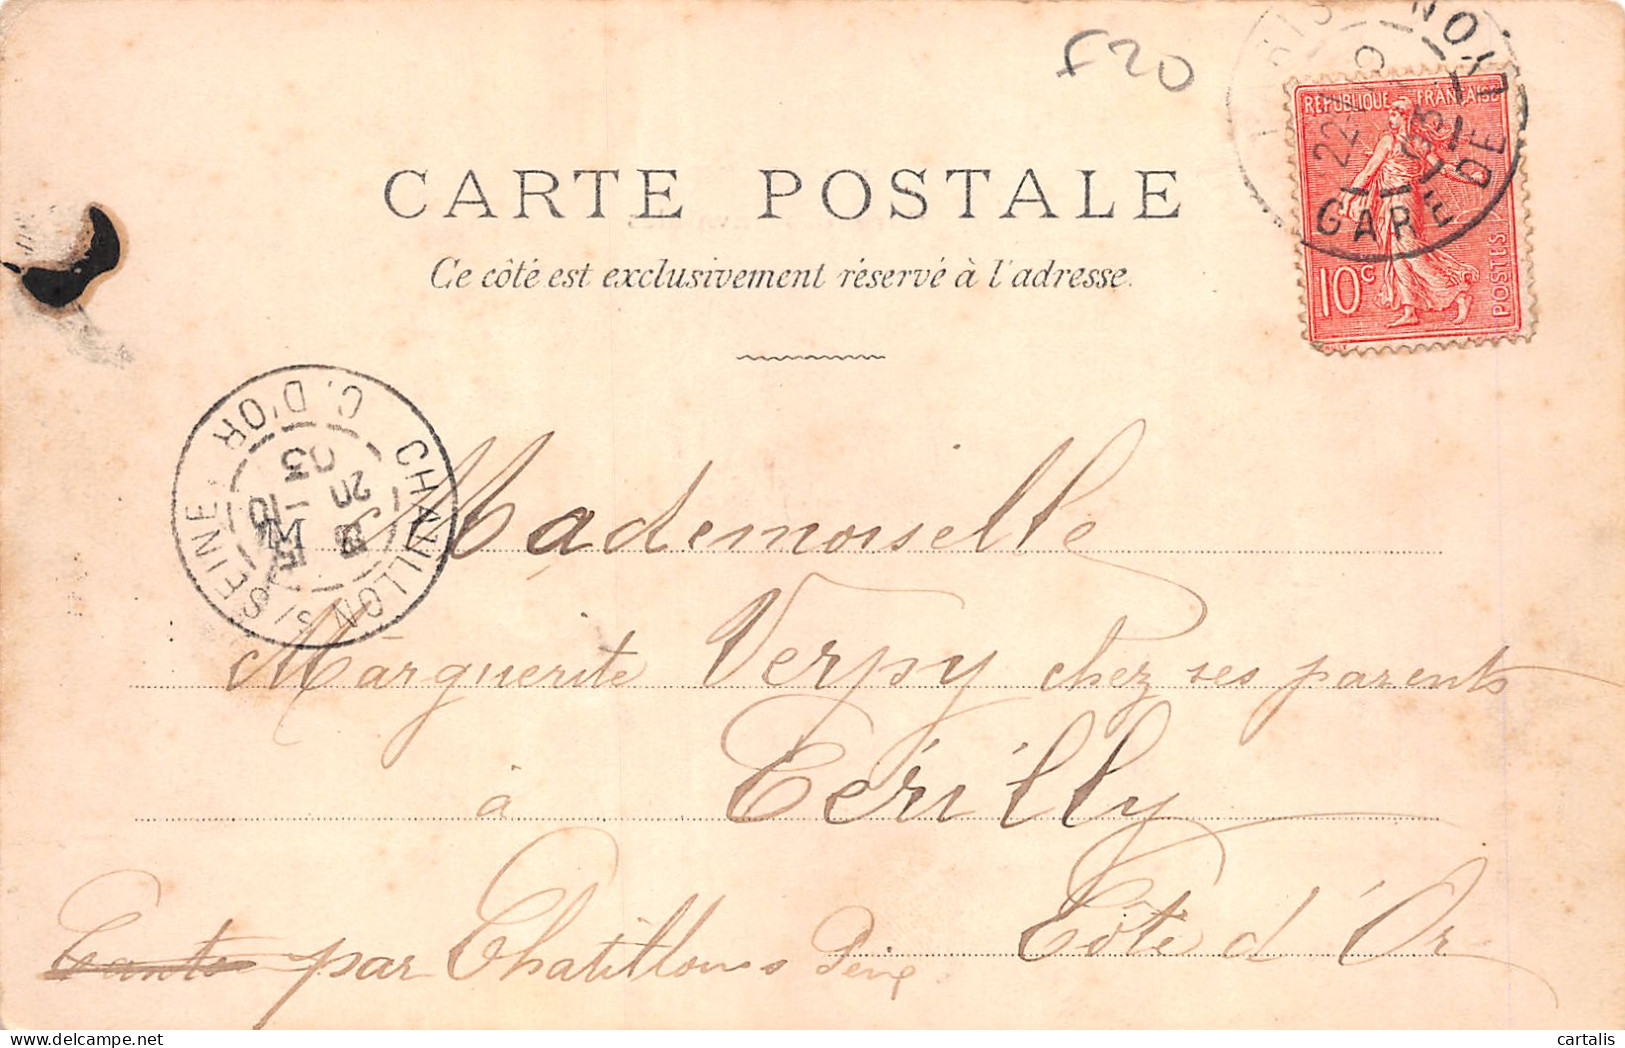 £20
RÉPUBLIQUE FRANÇAISE
10c
POSTES
PARIS GARE DE LYON
22
03
CARTE POSTALE
Ce côté est exclusivement réservé à l'adresse.
CHATILLON S/SEINE C. D'OR
20
10
03
M Mademoiselle
Marguerite Verpy chez ses parents
à Cérilly
par Chatillon s Seine Côte d'Or
cartalis
www.delcampe.net